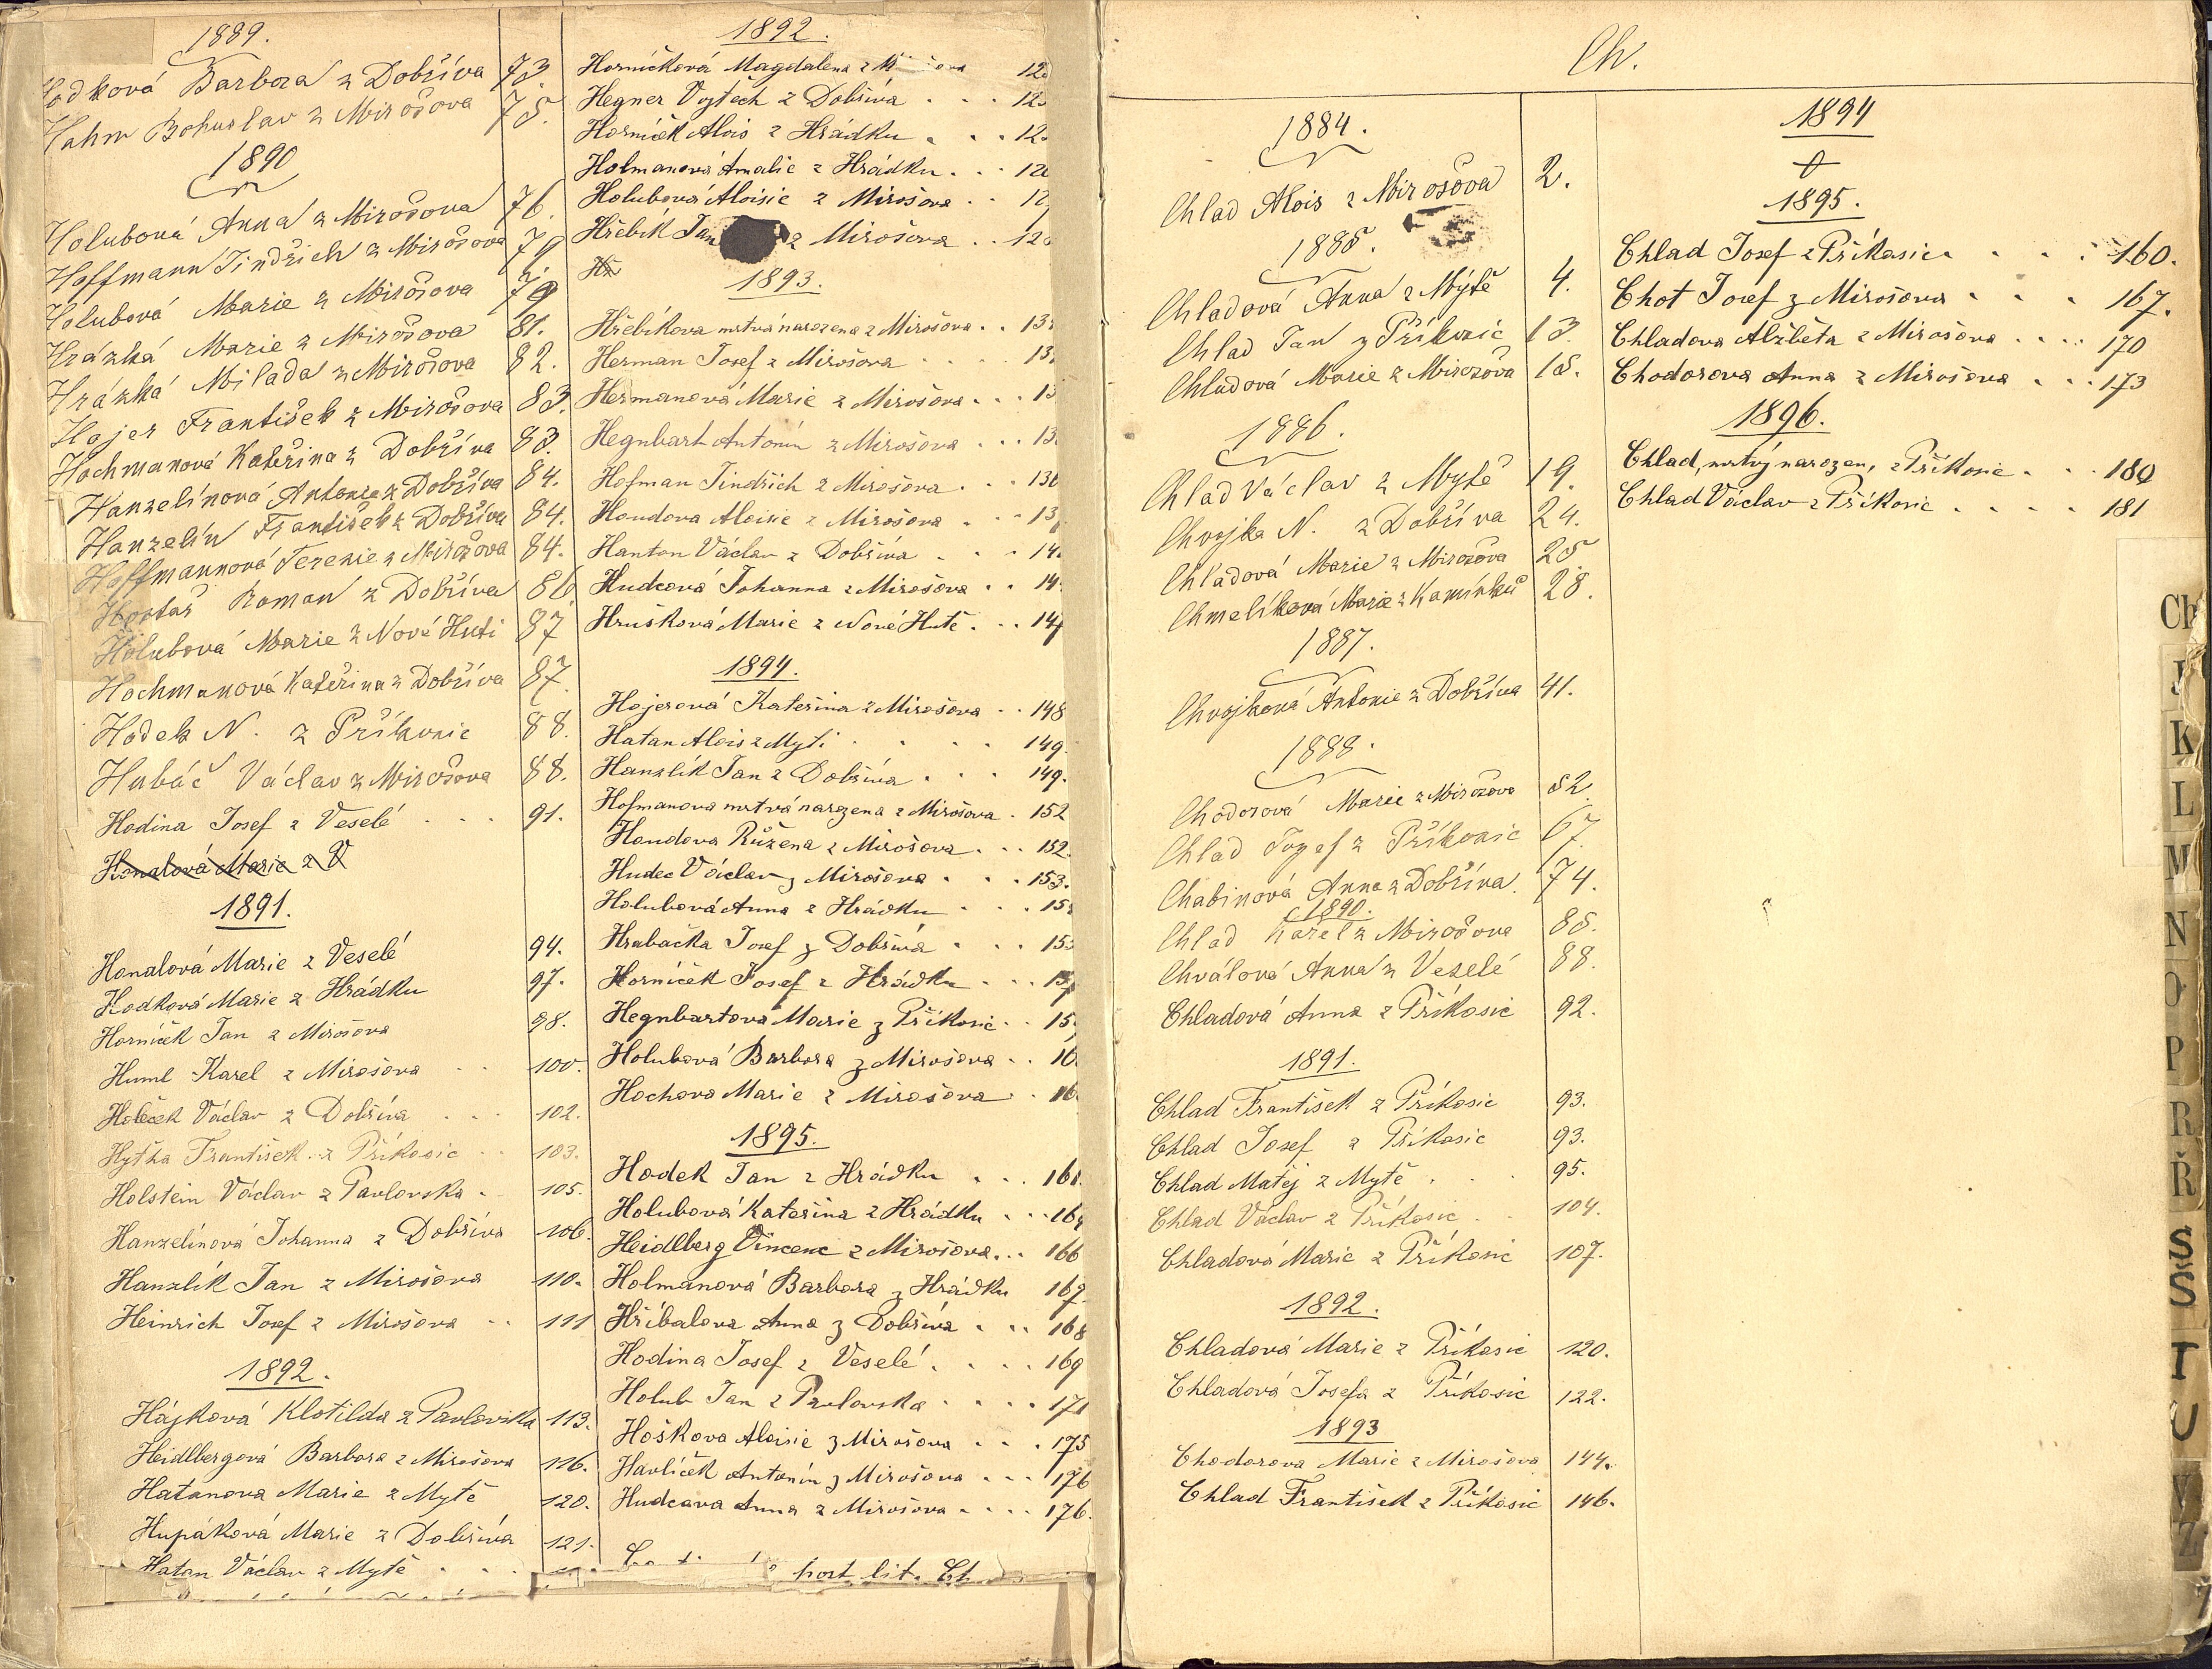 1889.
Hodková Barbora z Dobříva 73
Hahm Bohuslav z Mirošova 75.
1890
Holubová Anna z Mirošova 76.
Hoffmann Jindřich z Mirošova 79
Holubová Marie z Mirošova 79
Hrázká Marie z Mirošova 81.
Hrázká Milada z Mirošova 82.
Hajer František z Mirošova 83.
Hochmanová Kateřina z Dobříva 83.
Hanzelínová Antonie z Dobříva 84.
Hanzelín František z Dobříva 84.
Hoffmannová Terezie z Mirošova 84.
Roman z Dobříva 86
Holubová Marie z Nové Huti 87
Hochmanová Kateřina z Dobříva 87.
Hodek N. z Příkosic 88.
Hubáč Václav z Mirošova 88.
Hodina Josef z Veselé 91.
Honalová Marie z V
1891.
Honalová Marie z Veselé 94.
Hodková Marie z Hrádku 97.
Horníček Jan z Mirošova 98.
Huml Karel z Mirošova 100.
Holeček Václav z Dobříva 102.
Hytha František z Příkosic 103.
Holstein Václav z Pavlovska 105.
Hanzelínová Johanna z Dobříva 106.
Hanzlík Jan z Mirošova 110.
Heinrich Josef z Mirošova 111
1892.
Hájková Klotilda z Pavlovska 113.
Heidlbergová Barbora z Mirošova 116.
Hatanova Marie z Mytě 120.
Hupáková Marie z Dobříva 121.
Hatan Václav z Mytě
1892.
Horníčková Magdalena z
Hegner Vojtěch z Dobříva
Horníček Alois z Hrádku
Holmanová Amalie z Hrádku
Holubová Aloisie z Mirošova
Hřebík Jan z Mirošova
Hř
1893.
Hřebíkova mrtvá narozena z Mirošova
Herman Josef z Mirošova
Hermanová Marie z Mirošova
Hegnbart Antonín z Mirošova
Hofman Jindřich z Mirošova
Houdova Aloisie z Mirošova
Hanton Václav z Dobříva
Hudcová Johanna z Mirošova
Hrušková Marie z Nové Hutě
1894.
Hojerová Kateřina z Mirošova 148
Hatan Alois z Myti 149.
Hanzlík Jan z Dobříva 149.
Hofmanova mrtvá narozena z Mirošova 152
Houdova Růžena z Mirošova 152.
Hudec Václav z Mirošova 153.
Holubová Anna z Hrádku
Hrabačka Josef z Dobřívá
Horníček Josef z Hrádku
Hegnbartova Marie z Příkosic
Holubová Barbora z Mirošova
Hochova Marie z Mirošova
1895.
Hodek Jan z Hrádku 161.
Holubová Kateřina z Hrádku
Heidlberg Vincenc z Mirošova 166
Holmanová Barbora z Hrádku 167.
Hříbalova Anna z Dobřívá 168
Hodina Josef z Veselé 169
Holub Jan z Pavlovska 171
Hoškova Aloisie z Mirošova 175
Havlíček Antonín z Mirošova 176
Hudcava Anna z Mirošova 176.
post lit. Ch
Ch.
1884.
Chlad Alois z Mirošova 2.
1885.
Chladová Anna z Mýtě 4.
Chlad Jan z Příkosic 13.
Chladová Marie z Mirošova 15.
1886.
Chlad Václav z Mytě 19.
Chvojka N. z Dobříva 24.
Chladová Marie z Mirošova 25
Chmelíková Marie z Kamínků 28.
1887.
Chvojková Antonie z Dobříva 41.
1888.
Chodorová Marie z Mirošova 52.
Chlad Jozef z Příkosic 67.
Chabinová Anna z Dobříva. 74.
1890.
Chlad Karel z Mirošova 85.
Chválová Anna z Veselé 88.
Chladová Anna z Příkosic 92.
1891.
Chlad František z Příkosic 93.
Chlad Josef z Příkosic 93.
Chlad Matěj z Mytě 95.
Chlad Václav z Příkosic 104.
Chladová Marie z Příkosic 107.
1892.
Chladová Marie z Příkosic 120.
Chladová Josefa z Příkosic 122.
1893
Chodorova Marie z Mirošova 144.
Chlad František z Příkosic 146.
1894
1895.
Chlad Josef z Příkosic 160.
Chot Josef z Mirošova 167.
Chladova Alžběta z Mirošova 170
Chodorova Anna z Mirošova 173
1896.
Chlad, mrtvý narozen, z Příkosic 180
Chlad Václav z Příkosic 181
Ch
J
K
L
M
N
O
P
R
Ř
S
Š
T
U
V
Z